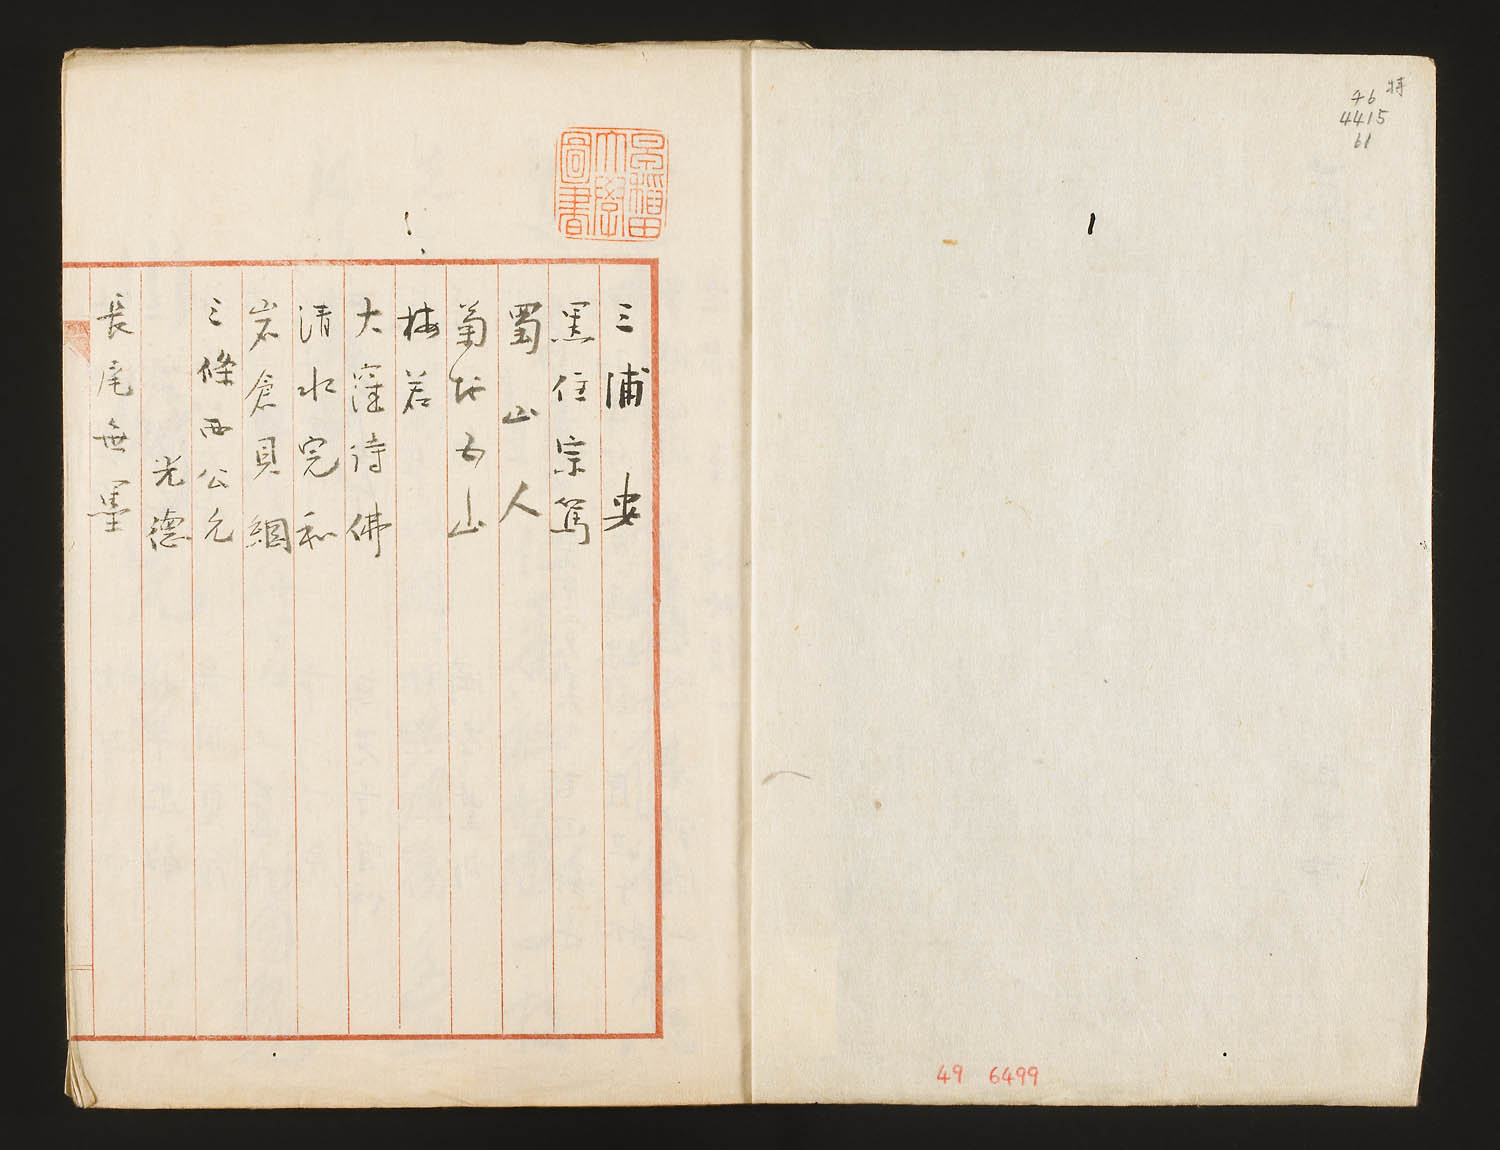 特
46
4415
61
早稲田
大學
圖書
三浦安
黒住宗篤
蜀山人
菊池五山
梅若
大窪詩佛
清水宗和
岩倉具綱
三條西公允
光德
長尾無墨
49 6499